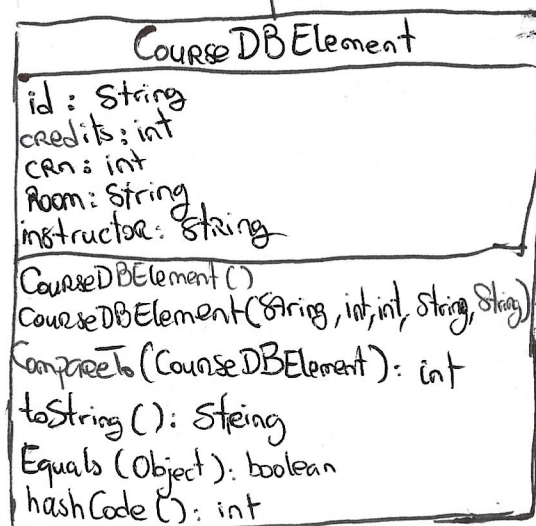 CourseDBElement
id : String
credits: int
crn: int
Room: String
instructor: String
CourseDBElement()
CourseDBElement(String, int, int, String, String)
CompareTo (CourseDBElement): int
toString (): String
Equals (Object): boolean
hashCode (): int